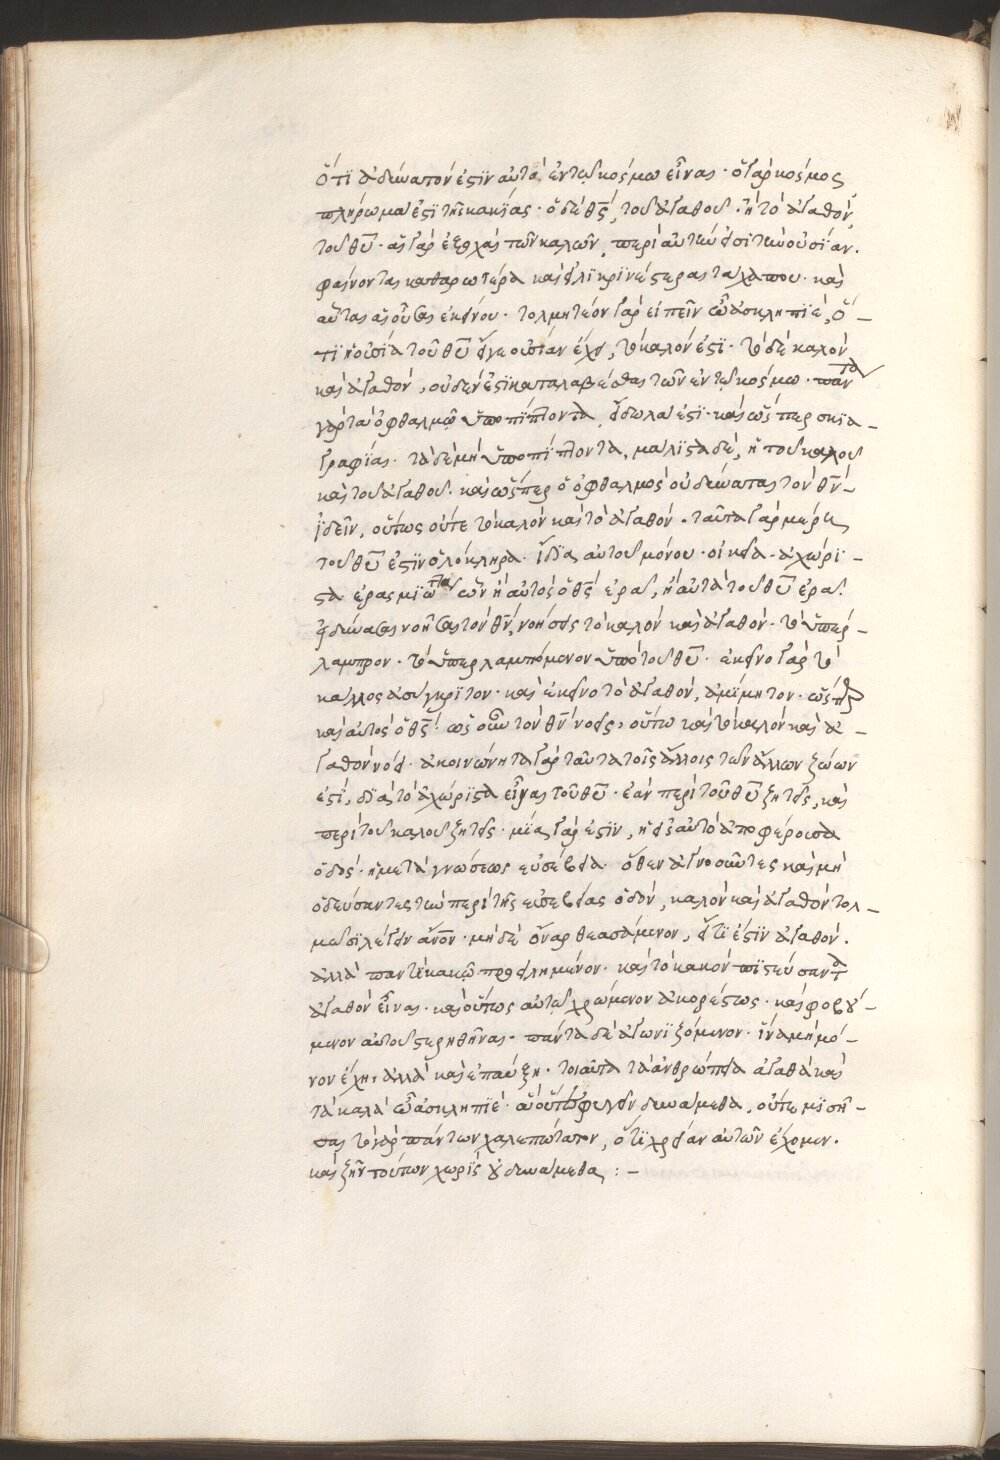 ὅτι ἀδύνατόν ἐστιν αὐτὰ ἐν τῷ κόσμῳ εἶναι· ὁ γὰρ κόσμος
πλήρωμά ἐστι τῆς κακίας· ὁ δὲ θς̄, τοῦ ἀγαθοῦ· ἢ τὸ ἀγαθὸν,
τοῦ θῡ· αἱ γὰρ ἐξοχαὶ τῶν καλῶν, περὶ αὐτήν εἰσι τὴν οὐσίαν.
φαίνονται καθαρώτερα καὶ εἰλικρινέστεραι τάχα που· καὶ
αὗται αἱ οὖσαι ἐκείνου· τολμητέον γὰρ εἰπεῖν ὦ ἀσκληπιὲ, ὅ-
τι ἡ οὐσία τοῦ θῡ εἴγε οὐσίαν ἔχει, τὸ καλόν ἐστι· τὸ δὲ καλὸν
καὶ ἀγαθὸν, οὐδέν ἐστι καταλαβέσθαι τῶν ἐν τῷ κόσμῳ· πάντα
γὰρ τὰ ὀφθαλμῷ ὑποπίπτοντα, εἴδωλά ἐστι· καὶ ὥσπερ σκια-
γραφίαι· τὰ δὲ μὴ ὑποπίπτοντα, μάλιστα δὲ, ἡ τοῦ καλοῦ
καὶ τοῦ ἀγαθοῦ· καὶ ὥσπερ ὁ ὀφθαλμὸς οὐ δύναται τὸν θν̄-
ἰδεῖν, οὕτως οὔτε τὸ καλὸν καὶ τὸ ἀγαθόν· ταῦτα γὰρ μέρη
τοῦ θῡ ἐστιν ὁλόκληρα· ἴδια αὐτοῦ μόνου· οἰκεῖα· ἀχώρι-
στα ἐρασμιώτατα ὧν ἢ αὐτὸς ὁ θς̄ ἐρᾷ, ἢ αὐτὰ τοῦ θῡ ἐρᾷ.
εἰ δύνασαι νοῆσαι τὸν θν̄, νοήσεις τὸ καλὸν καὶ ἀγαθόν· τὸ ὑπέρ-
λαμπρον· τὸ ὑπερλαμπόμενον ὑπὸ τοῦ θῡ· ἐκεῖνο γὰρ τὸ
κάλλος ἀσύγκριτον· καὶ ἐκεῖνο τὸ ἀγαθὸν, ἀμίμητον· ὥσπερ
καὶ αὐτὸς ὁ θς̄· ὡς οὖν τὸν θν̄ νοεῖς, οὕτω καὶ τὸ καλὸν καὶ ἀ-
γαθὸν νόει· ἀκοινώνητα γὰρ ταῦτα τοῖς ἄλλοις τῶν ἄλλων ζώων
ἐστὶ, διὰ τὸ ἀχώριστα εἶναι τοῦ θῡ· ἐὰν περὶ τοῦ θῡ ζητῇς, καὶ
περὶ τοῦ καλοῦ ζητεῖς· μία γάρ ἐστιν, ἡ εἰς αὐτὸ ἀποφέρουσα
ὁδός· ἡ μετὰ γνώσεως εὐσέβεια· ὅθεν ἀγνοοῦντες καὶ μὴ
ὁδεύσαντες τὴν περὶ τῆς εὐσεβείας ὁδὸν, καλὸν καὶ ἀγαθὸν τολ-
μῶσι λέγειν ἄνον· μηδὲ ὄναρ θεασάμενον, εἴ τι ἐστὶν ἀγαθόν.
ἀλλὰ παντὶ κακῷ προειλημμένον· καὶ τὸ κακὸν πιστεύσαντα
ἀγαθὸν εἶναι· καὶ οὕτως αὐτῷ χρώμενον ἀκορέστως· καὶ φοβού-
μενον αὐτοῦ στερηθῆναι· πάντα δὲ ἀγωνιζόμενον· ἵνα μὴ μό-
νον ἔχῃ, ἀλλὰ καὶ ἐπαύξῃ· τοιαῦτα τὰ ἀνθρώπεια ἀγαθὰ καὶ
τὰ καλὰ ὦ ἀσκληπιέ· ἃ οὔτε φεύγειν δυνάμεθα, οὔτε μισῆ-
σαι τὸ γὰρ πάντων χαλεπώτατον, ὅτι χρείαν αὐτῶν ἔχομεν.
καὶ ζῆν τούτων χωρὶς οὐ δυνάμεθα :-